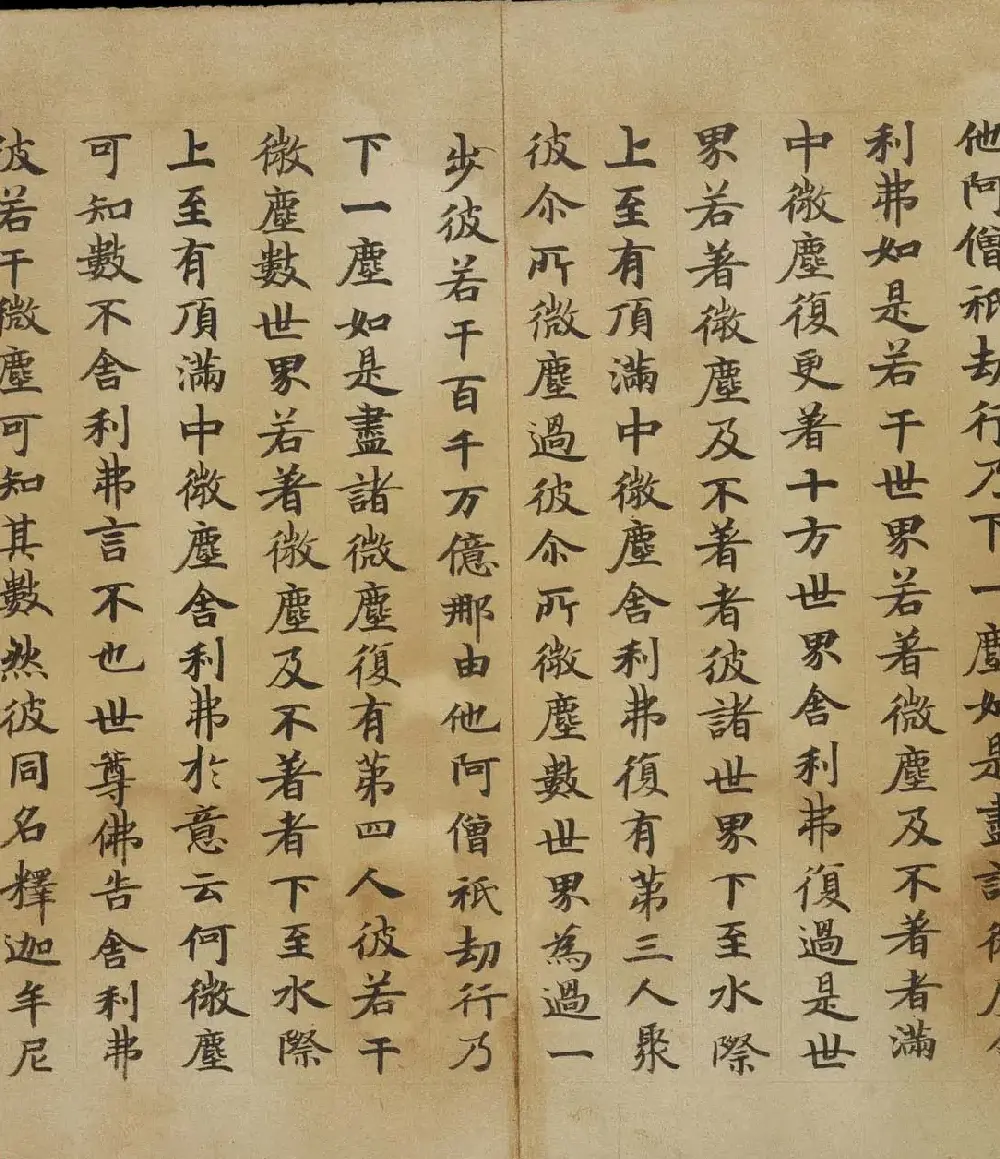 他阿僧祇劫行乃下一塵如是盡諸微
利弗如是若干世界若著微塵及不著者滿
中微塵復更著十方世界舍利弗復過是世
界若著微塵及不著者彼諸世界下至水際
上至有頂滿中微塵舍利弗復有第三人聚
彼尒所微塵過彼尒所微塵數世界為過一
步彼若干百千万億那由他阿僧祇劫行乃
下一塵如是盡諸微塵復有第四人彼若干
微塵數世界若著微塵及不著者下至水際
上至有頂滿中微塵舍利弗於意云何微塵
可知數不舍利弗言不也世尊佛告舍利弗
彼若干微塵可知其數然彼同名釋迦牟尼